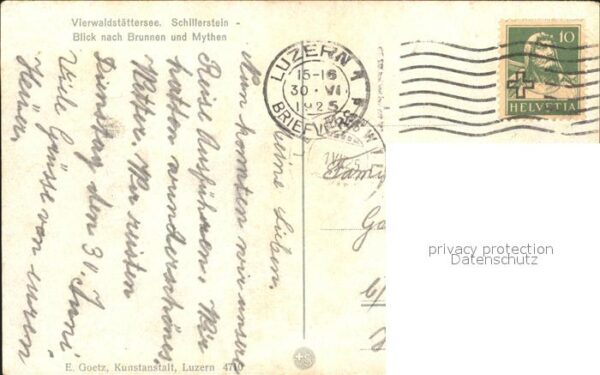 Vierwaldstättersee. Schillerstein -
Blick nach Brunnen und Mythen
LUZERN 1
15-16
30. VI.
1925
BRIEFVERS
10
HELVETIA
Meine Lieben,
Nun konnten wir unsere
Reise Ausführen. Wir
hatten wunderschönes
Wetter. Wir reisten
Dienstag den 30. Juni
Viele Grüsse von euren
privacy protection
Datenschutz
E. Goetz, Kunstanstalt, Luzern